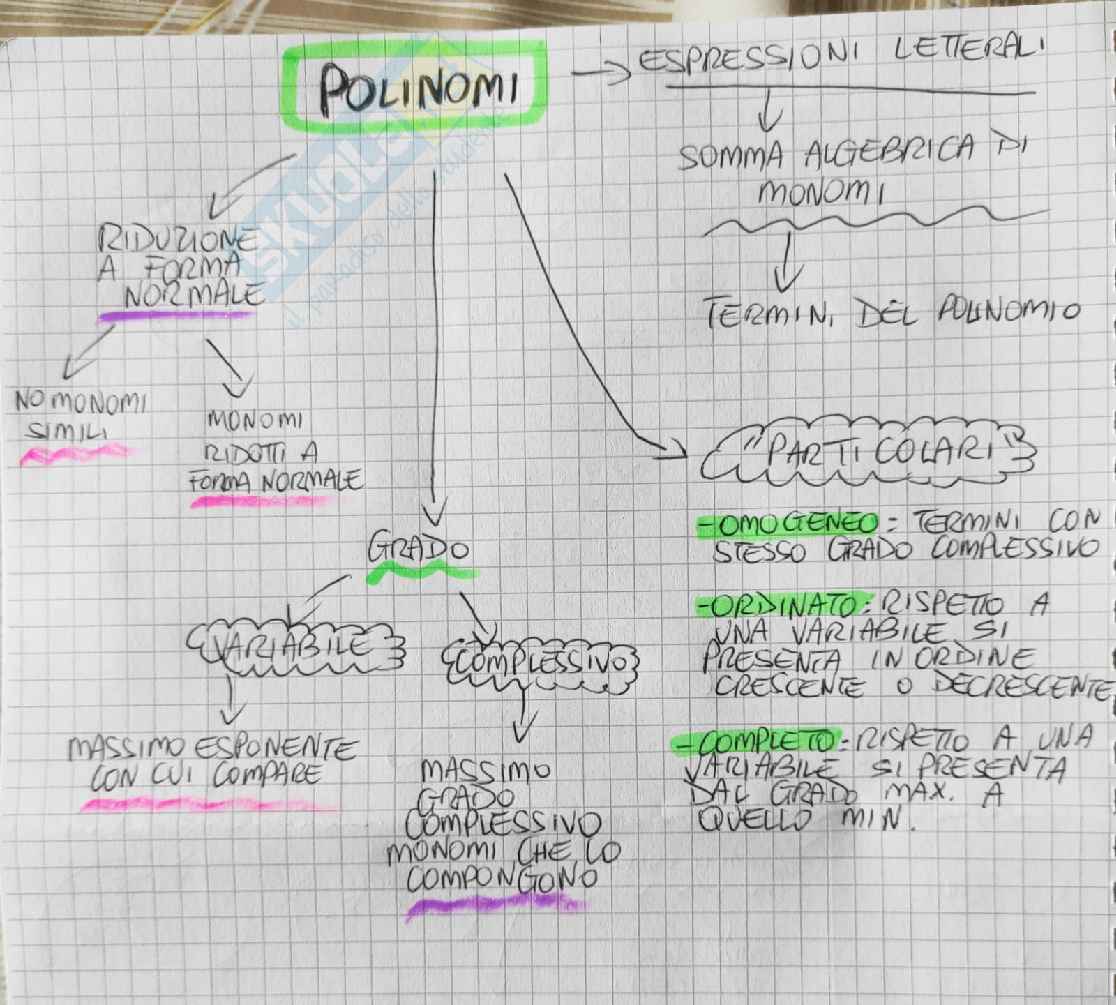 POLINOMI
ESPRESSIONI LETTERALI
SOMMA ALGEBRICA DI
MONOMI
TERMINI DEL POLINOMIO
RIDUZIONE
A FORMA
NORMALE
NO MONOMI
SIMILI
MONOMI
RIDOTTI A
FORMA NORMALE
GRADO
VARIABILE
MASSIMO ESPONENTE
CON CUI COMPARE
COMPLESSIVO
MASSIMO
GRADO
COMPLESSIVO
MONOMI CHE LO
COMPONGONO
"PARTICOLARI"
-OMOGENEO: TERMINI CON
STESSO GRADO COMPLESSIVO
-ORDINATO: RISPETTO A
UNA VARIABILE SI
PRESENTA IN ORDINE
CRESCENTE O DECRESCENTE
-COMPLETO: RISPETTO A UNA
VARIABILE SI PRESENTA
DAL GRADO MAX. A
QUELLO MIN.
SKUOLA
il paradiso dello studente